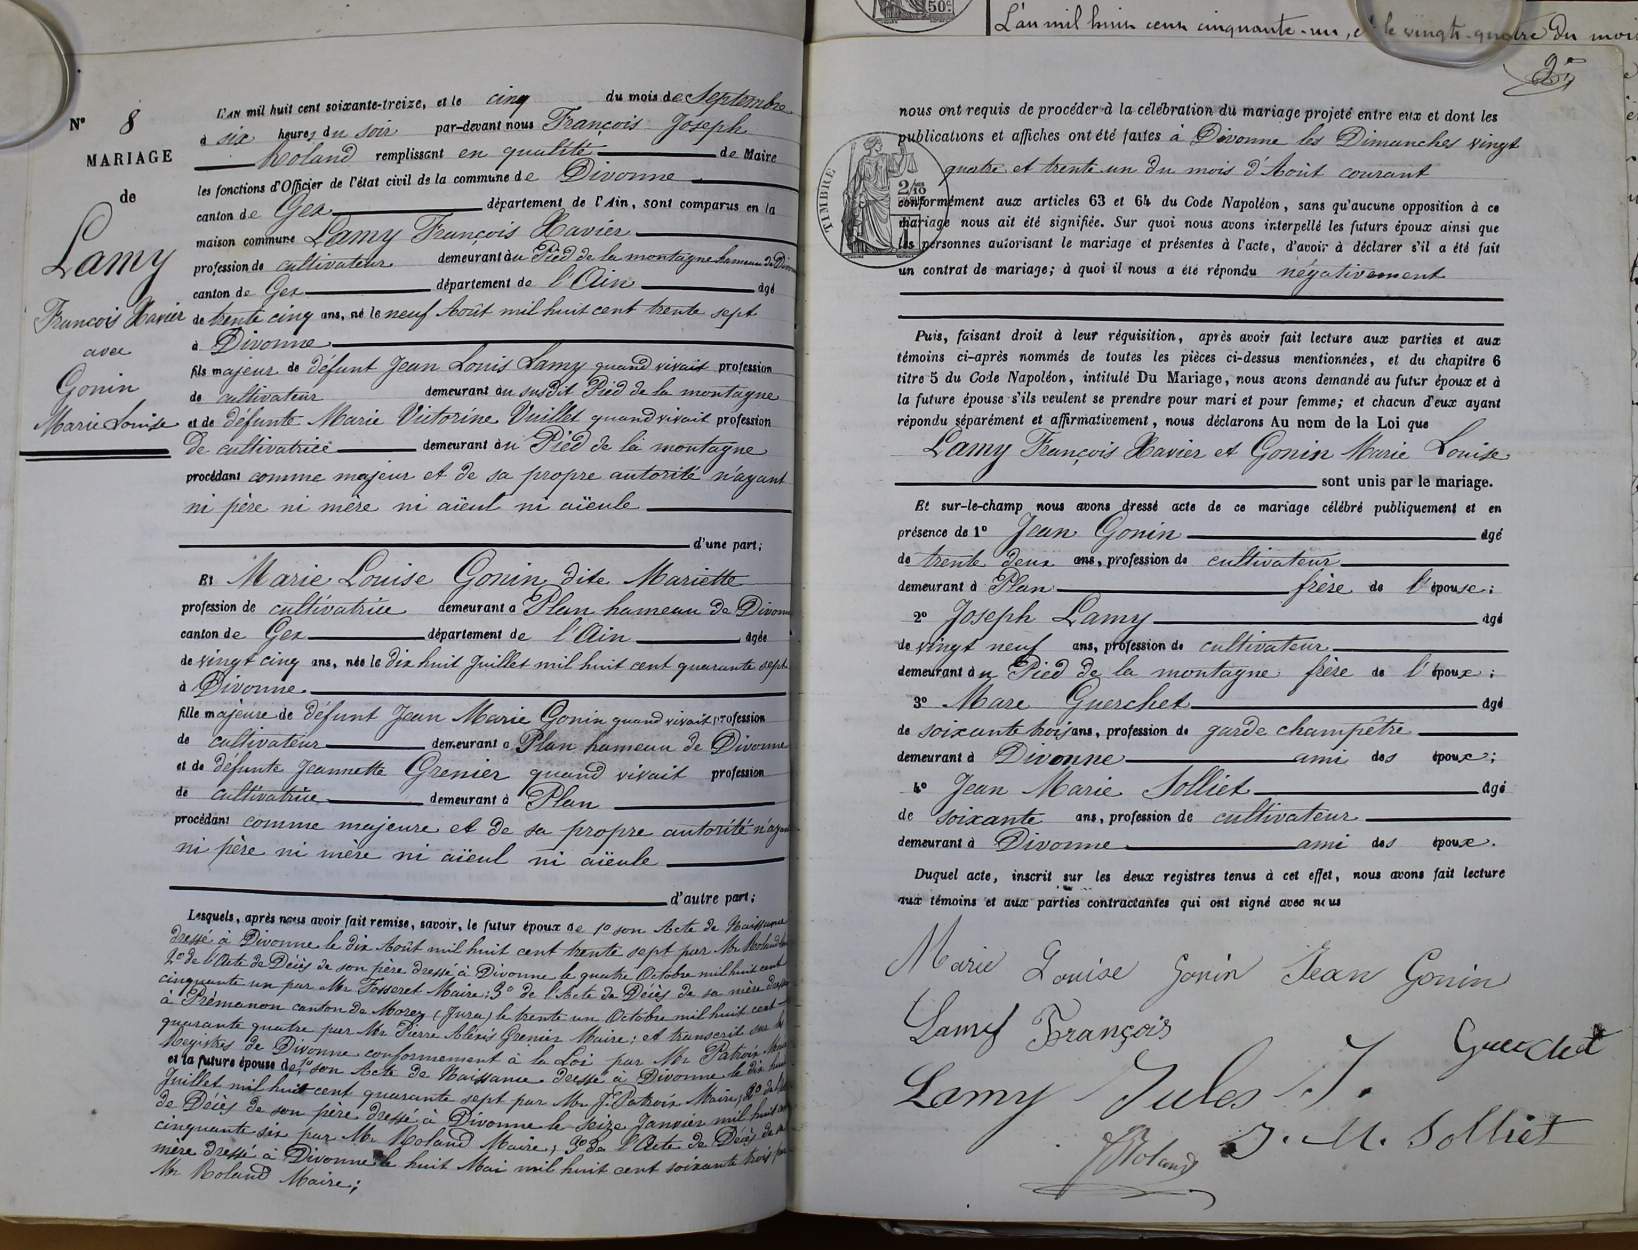 N° 8
MARIAGE
de
Lamy
François Xavier
avec
Gonin
Marie Louise
L'AN mil huit cent soixante-treize, et le cinq du mois de Septembre
à six heures du soir par-devant nous François Joseph
Roland remplissant en qualité de Maire
les fonctions d'Officier de l'état civil de la commune de Divonne
canton de Gex département de l'Ain, sont comparus en la
maison commune Lamy François Xavier
profession de cultivateur demeurant au Pied de la montagne hameau de Divonne
canton de Gex département de l'Ain âgé
de trente cinq ans, né le neuf Août mil huit cent trente sept
à Divonne
fils majeur de défunt Jean Louis Lamy quand vivait profession
de cultivateur demeurant au susdit Pied de la montagne
et de défunte Marie Victorine Vuillet quand vivait profession
de cultivatrice demeurant au Pied de la montagne
procédant comme majeur et de sa propre autorité n'ayant
ni père ni mère ni aïeul ni aïeule
d'une part;
Et Marie Louise Gonin dite Mariette
profession de cultivatrice demeurant à Plan hameau de Divonne
canton de Gex département de l'Ain âgée
de vingt cinq ans, née le dix huit Juillet mil huit cent quarante sept
à Divonne
fille majeure de défunt Jean Marie Gonin quand vivait profession
de cultivateur demeurant à Plan hameau de Divonne
et de défunte Jeannette Grenier quand vivait profession
de cultivatrice demeurant à Plan
procédant comme majeure et de sa propre autorité n'ayant
ni père ni mère ni aïeul ni aïeule
d'autre part;
Lesquels, après nous avoir fait remise, savoir, le futur époux de 1° son Acte de Naissance
dressé à Divonne le dix Août mil huit cent trente sept par Mr Roland
2° de l'Acte de Décès de son père dressé à Divonne le quatre Octobre mil huit cent
cinquante un par Mr Fosseret Maire; 3° de l'Acte de Décès de sa mère dressé
à Prémanon canton de Morez (Jura) le trente un Octobre mil huit cent
quarante quatre par Mr Pierre Alexis Grenier Maire; et transcrit sur les
Registres de Divonne conformement à la Loi par Mr Patroix Maire
et la future épouse de 1° son Acte de Naissance dressé à Divonne le dix huit
Juillet mil huit cent quarante sept par Mr J. Patroix Maire; 2° de l'Acte
de Décès de son père dressé à Divonne le seize Janvier mil huit cent
cinquante six par Mr Roland Maire; 3° de l'Acte de Décès de sa
mère dressé à Divonne le huit Mai mil huit cent soixante trois par
Mr Roland Maire;
50c
L'an mil huit cent cinquante-un, et le vingt-quatre du mois
nous ont requis de procéder à la célébration du mariage projeté entre eux et dont les
publications et affiches ont été faites à Divonne les Dimanches vingt
quatre et trente un du mois d'Août courant
TIMBRE
2/10
conformément aux articles 63 et 64 du Code Napoléon, sans qu'aucune opposition à ce
mariage nous ait été signifiée. Sur quoi nous avons interpellé les futurs époux ainsi que
les personnes autorisant le mariage et présentes à l'acte, d'avoir à déclarer s'il a été fait
un contrat de mariage; à quoi il nous a été répondu négativement
Puis, faisant droit à leur réquisition, après avoir fait lecture aux parties et aux
témoins ci-après nommés de toutes les pièces ci-dessus mentionnées, et du chapitre 6
titre 5 du Code Napoléon, intitulé Du Mariage, nous avons demandé au futur époux et à
la future épouse s'ils veulent se prendre pour mari et pour femme; et chacun d'eux ayant
répondu séparément et affirmativement, nous déclarons Au nom de la Loi que
Lamy François Xavier et Gonin Marie Louise
sont unis par le mariage.
Et sur-le-champ nous avons dressé acte de ce mariage célébré publiquement et en
présence de 1° Jean Gonin âgé
de trente deux ans, profession de cultivateur
demeurant à Plan frère de l'épouse;
2° Joseph Lamy âgé
de vingt neuf ans, profession de cultivateur
demeurant au Pied de la montagne frère de l'époux;
3° Marc Guerchet âgé
de soixante trois ans, profession de garde champêtre
demeurant à Divonne ami des époux;
4° Jean Marie Solliet âgé
de soixante ans, profession de cultivateur
demeurant à Divonne ami des époux.
Duquel acte, inscrit sur les deux registres tenus à cet effet, nous avons fait lecture
aux témoins et aux parties contractantes qui ont signé avec nous
Marie Louise Gonin Jean Gonin
Lamy François Guerchet
Lamy Jules J.
J. M. Solliet
Roland